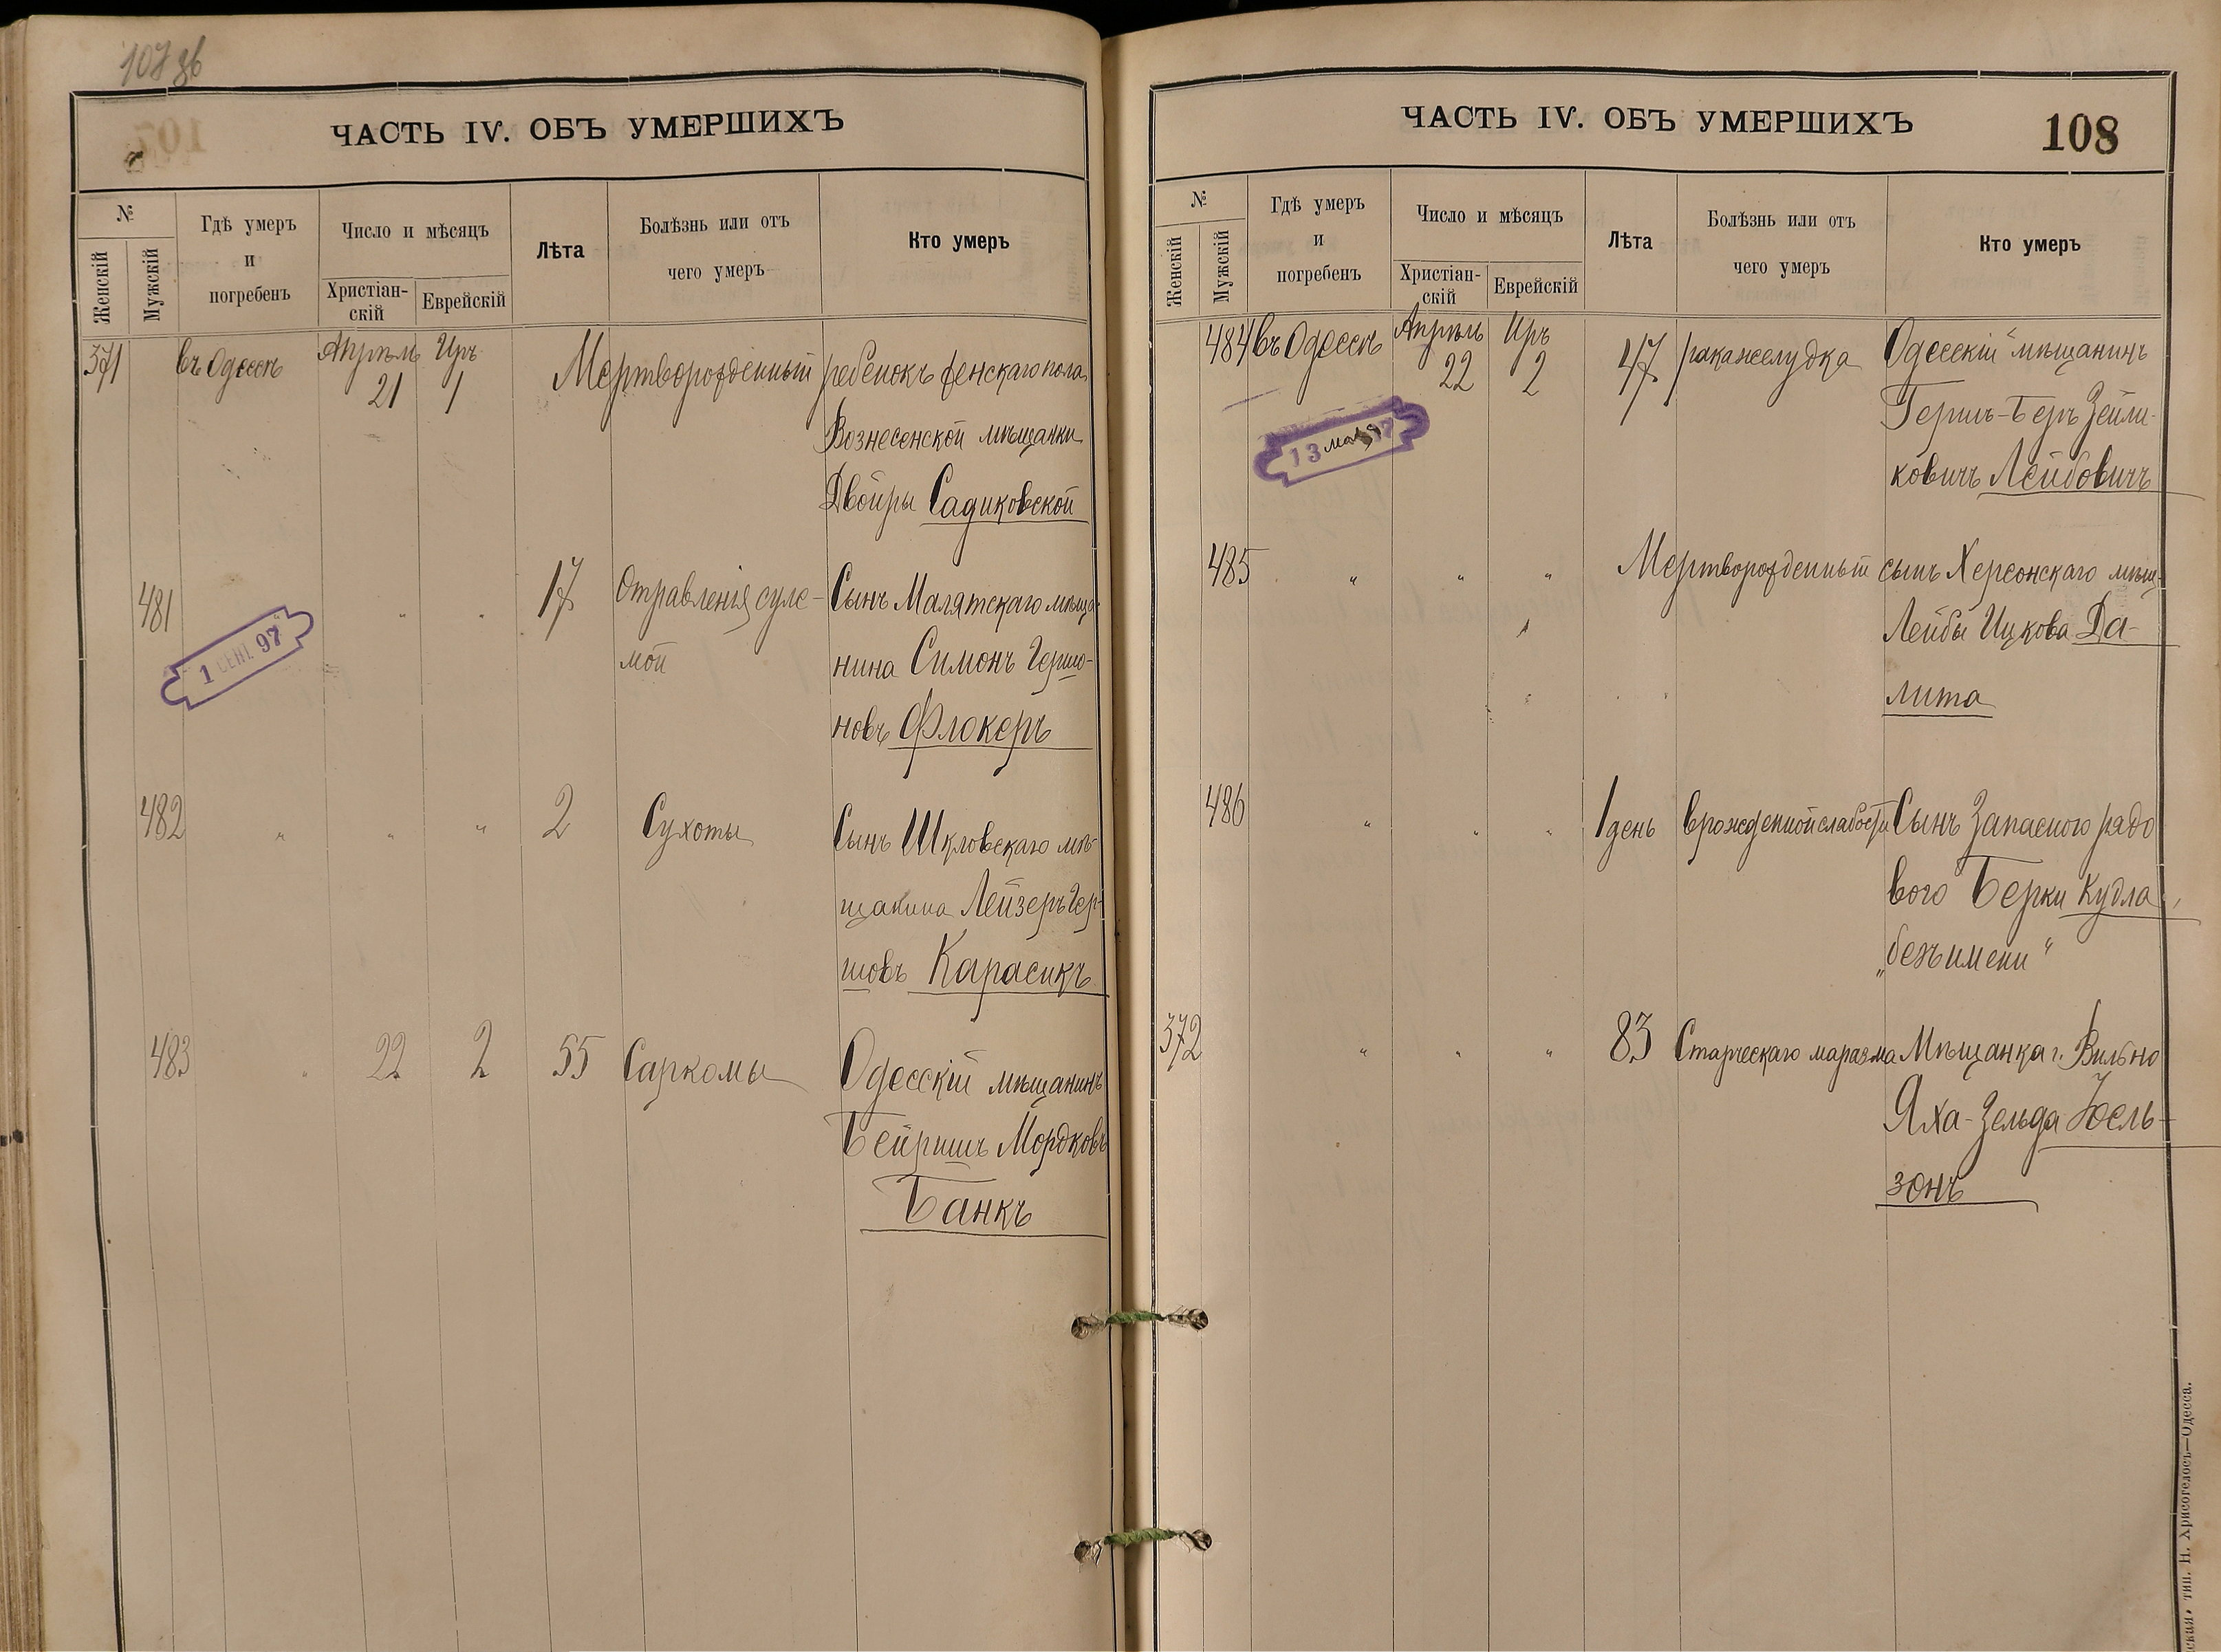 107 зв
ЧАСТЬ IV. ОБЪ УМЕРШИХЪ
№
Женскій
Мужскій
Гдѣ умеръ
и
погребенъ
Число и мѣсяцъ
Христіан-
скій
Еврейскій
Лѣта
Болѣзнь или отъ
чего умеръ
Кто умеръ
371 въ Одессѣ Апрѣль Иръ Мертворожденный ребенокъ женскаго пола
21 1
Вознесенской мѣщанки
Двойры Садиковской
481 " " 17 Отравленія суле- Сынъ Малятскаго мѣща-
мой нина Симонъ Гершо-
1 СЕН. 97
новъ Флокеръ
482 " " " 2 Сухоты Сынъ Шкловскаго мѣ-
щанина Лейзеръ Гер-
шовъ Карасикъ
483 " 22 2 55 Саркомы Одесскій мѣщанинъ
Бейришъ Мордковъ
Банкъ
ЧАСТЬ IV. ОБЪ УМЕРШИХЪ
108
№
Женскій
Мужскій
Гдѣ умеръ
и
погребенъ
Число и мѣсяцъ
Христіан-
скій
Еврейскій
Лѣта
Болѣзнь или отъ
чего умеръ
Кто умеръ
484 въ Одессѣ Апрѣль Иръ 47 рака желудка Одесскій мѣщанинъ
22 2
Гершъ-Беръ Зейли-
13 мая 97
ковичъ Лейбовичъ
485 " " " Мертворожденный сынъ Херсонскаго мѣщ.
Лейбы Ицкова Да-
лита
486 " " " 1 день врожденной слабости Сынъ Запасного рядо
вого Берки Кудла,
„безъ имени“
372 " " " 83 Старческаго маразма Мѣщанка г. Вильно
Яха-Зельда Іоель-
зонъ
тип. Н. Хрисогелосъ—Одесса.